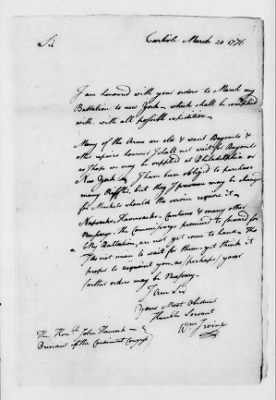 Carlisle March 20 1776
Sir
I am honored with your orders to March my
Battalion to new York - which shall be complied
with, with all possible expedition.
Many of the Arms are old & want Bayonets &
other repairs however I shall not wait for Bayonets
as I hope we may be supplied at Philadelphia or
New York. I have been obliged to purchase
many Riffles, but they I presume may be changed
for Muskets should the service require it.
Knapsacks, Haversacks, Canteens & many other
Necessarys the Commissarys promised to forward for
the Battalion, are not yet come to hand. I
do not mean to wait for them, yet think it
proper to acquaint you, as perhaps your
further order may be Necessary.
I am Sir
Yours Most Obedient
Humble Servant
Wm Irvine
The Honble John Hancock
President of the Continental Congress